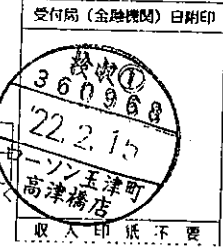 受付局(金融機関)日附印
検収①
360968
'22.2.15
ローソン玉津町
高津橋店
収入印紙不要